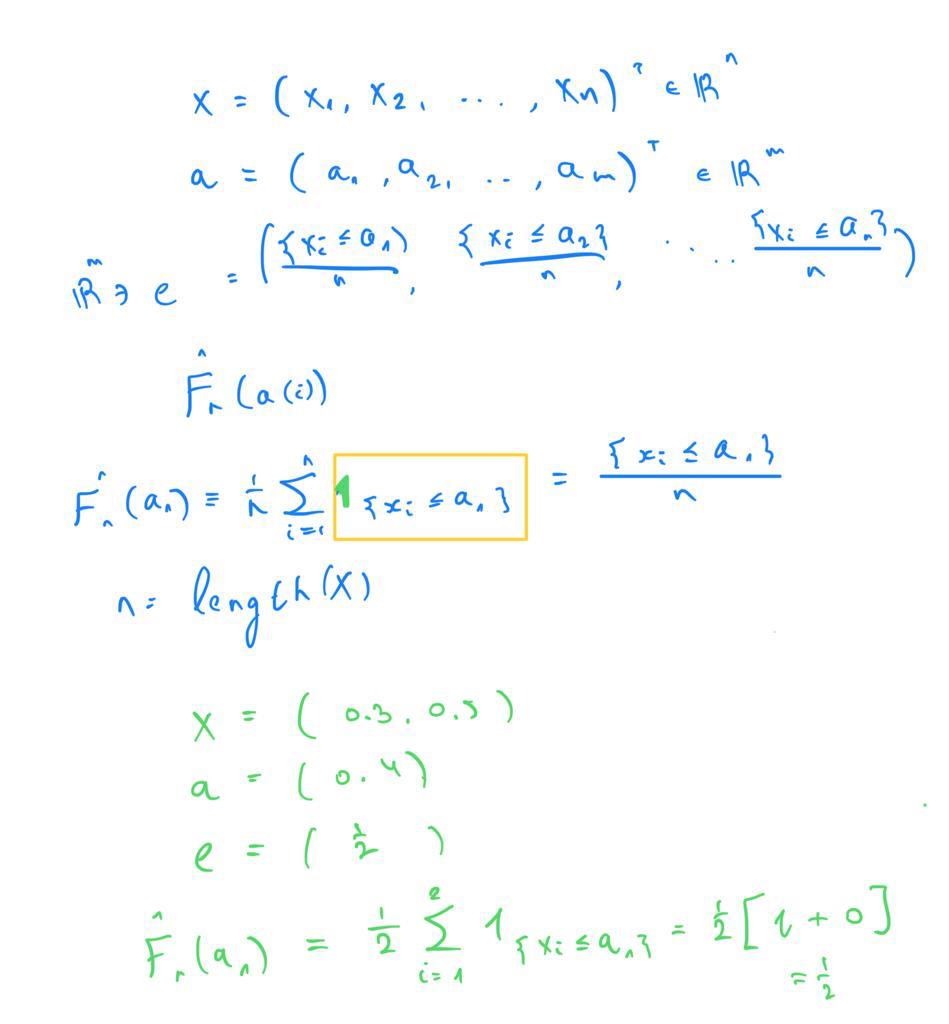 x = ( x₁, x₂, ..., xn)ᵀ ∈ ℝⁿ
a = ( a₁, a₂, .., am)ᵀ ∈ ℝᵐ
ℝᵐ ∋ e = ( {xᵢ ≤ a₁)/n, {xᵢ ≤ a₂}/n, .. .. {xᵢ ≤ aₙ}/n )
F̂ₙ (a(i))
F̂ₙ (a₁) = 1/n ∑ᵢ₌₁ⁿ 1 {xᵢ ≤ a₁} = {xᵢ ≤ a₁}/n
n = length(X)
x = ( 0.3, 0.5 )
a = ( 0.4)
e = ( 1/2 )
F̂ₙ (a₁) = 1/2 ∑ᵢ₌₁² 1 {xᵢ ≤ a₁} = 1/2 [1 + 0]
= 1/2